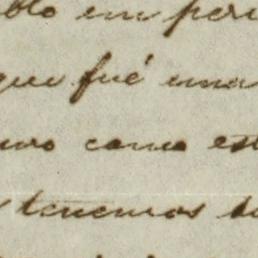 blo en peri
que fué una
uro como est
tenemos